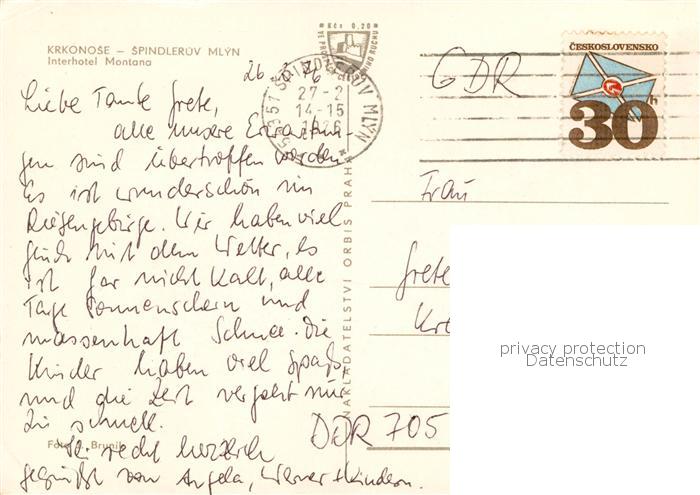 KRKONOŠE – ŠPINDLERŮV MLÝN
Interhotel Montana
Kčs 0,20
ČESKOSLOVENSKO
30h
27-2
14-15
ŠPINDLERŮV MLÝN
GDR
Liebe Tante Grete,
alle unsere Erwartun-
gen sind übertroffen worden
Es ist wunderschön im
Riesengebirge. Wir haben viel
Glück mit dem Wetter, es
ist gar nicht kalt, alle
Tage Sonnenschein und
massenhaft Schnee. Die
Kinder haben viel Spaß
und die Zeit vergeht nur
zu schnell.
Sei recht herzlich
gegrüßt von Angela, Werner + Kindern.
NAKLADATELSTVÍ ORBIS PRAHA
Frau
Grete
DDR 705
privacy protection
Datenschutz